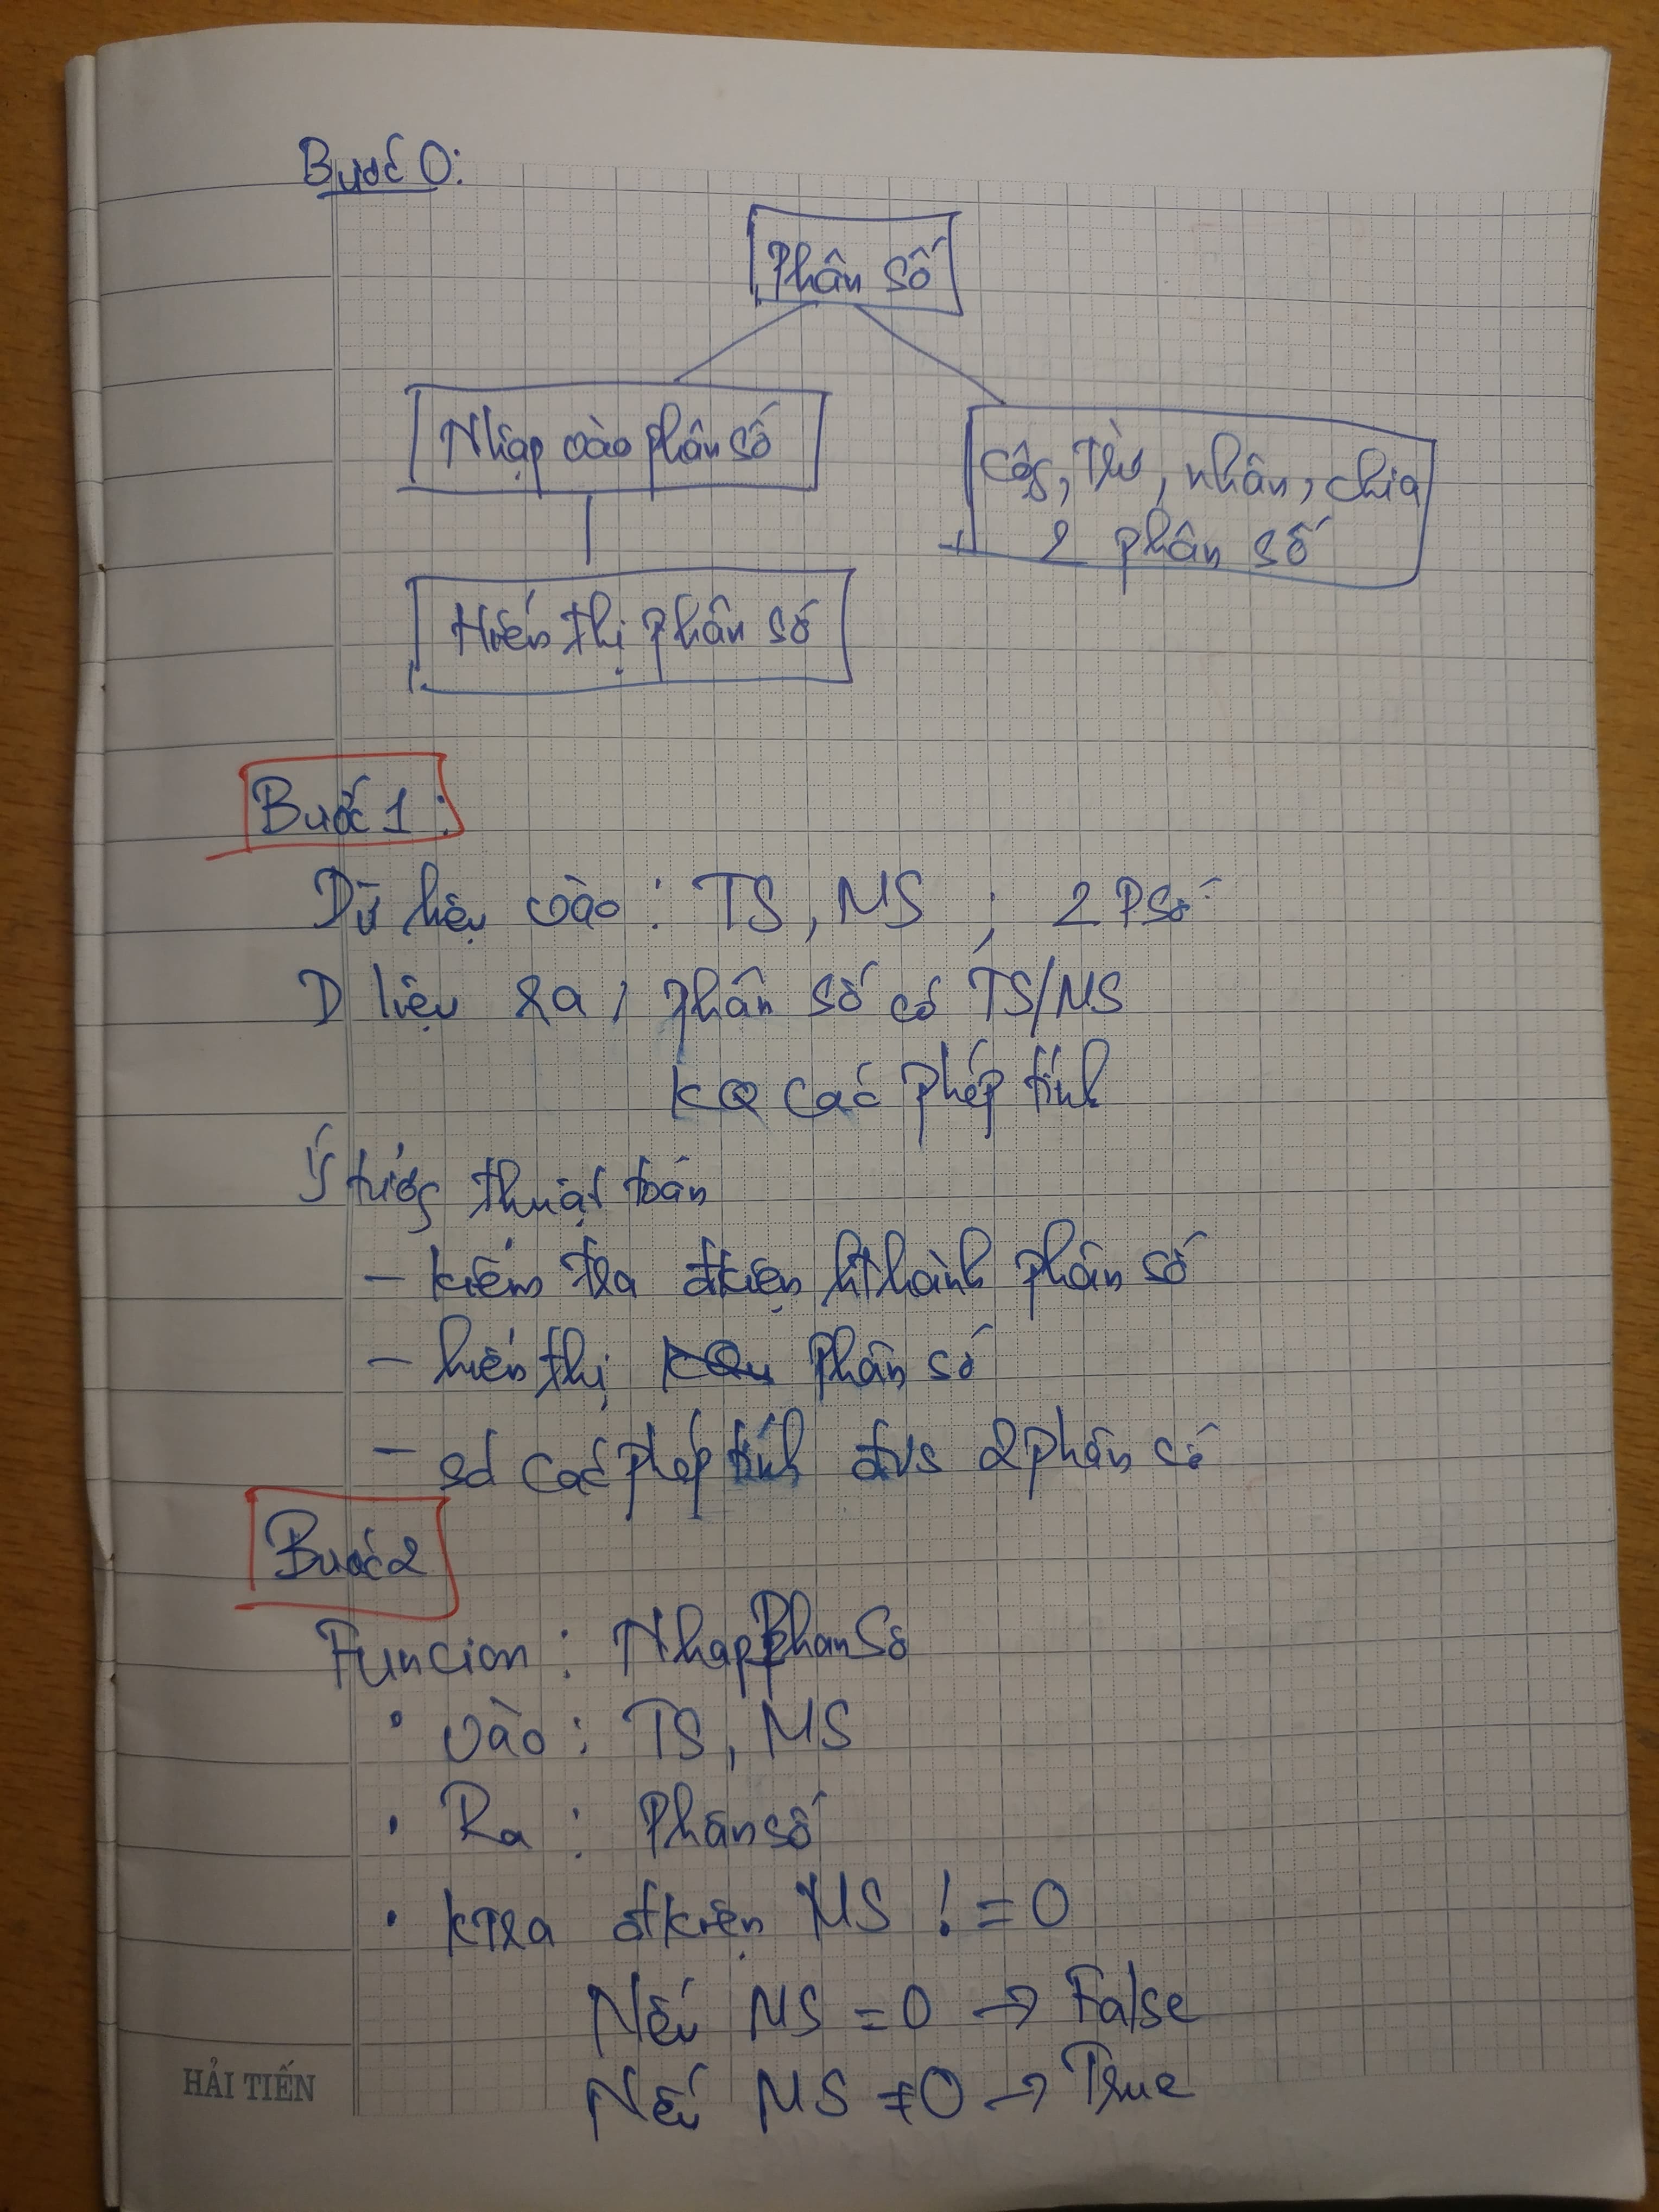 Bước 0:
Phân số
Nhập vào phân số
Cộg, Trừ, nhân, chia
2 phân số
Hiển thị phân số
Bước 1:
Dữ liệu vào: TS, MS ; 2 PSố
D liệu ra: phân số có TS/MS
KQ các phép tính
Ý tưởg thuật toán
- kiểm tra đkiện hthành phân số
- hiển thị phân số
- sd các phép tính đvs 2 phân số
Bước 2
Funcion: NhapPhanSo
• vào: TS, MS
• Ra: Phân số
• ktra đkiện MS != 0
Nếu MS = 0 → False
Nếu MS ≠ 0 → True
HẢI TIẾN